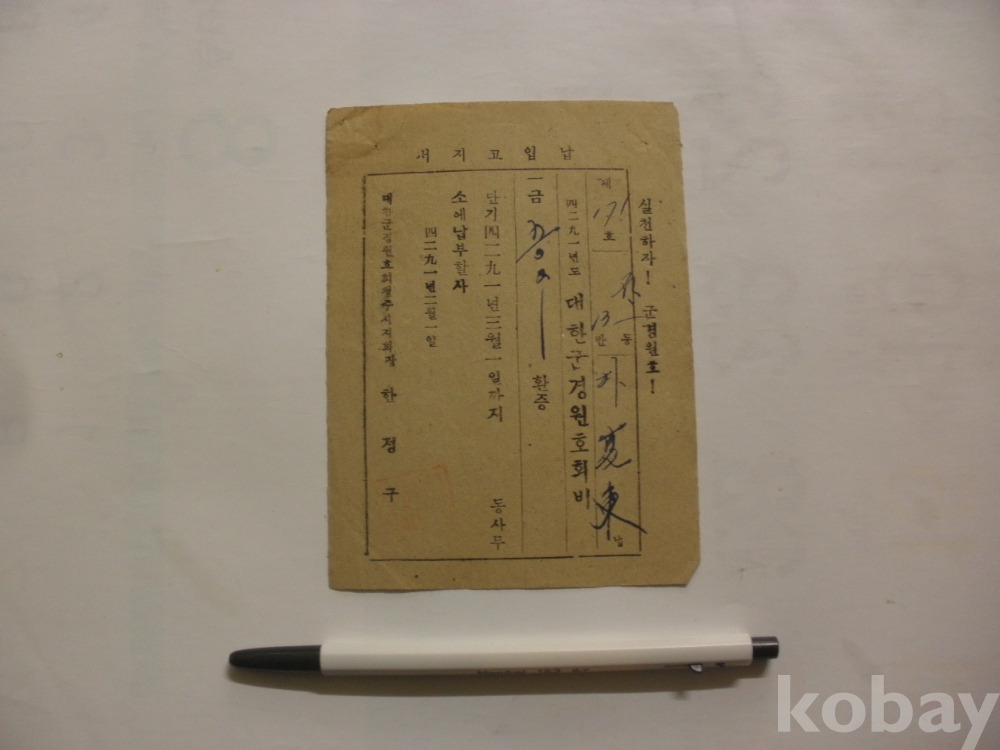 실천하자! 군경원호!
납입고지서
제 171 호
13 반 동
夏東 납
四二九一년도 대한군경원호회비
一금 환증
단기四二九一년三월一일까지 동사무
소에납부할사
四二九一년二월一일
대한군경원호회청주시지회장 한정구
kobay